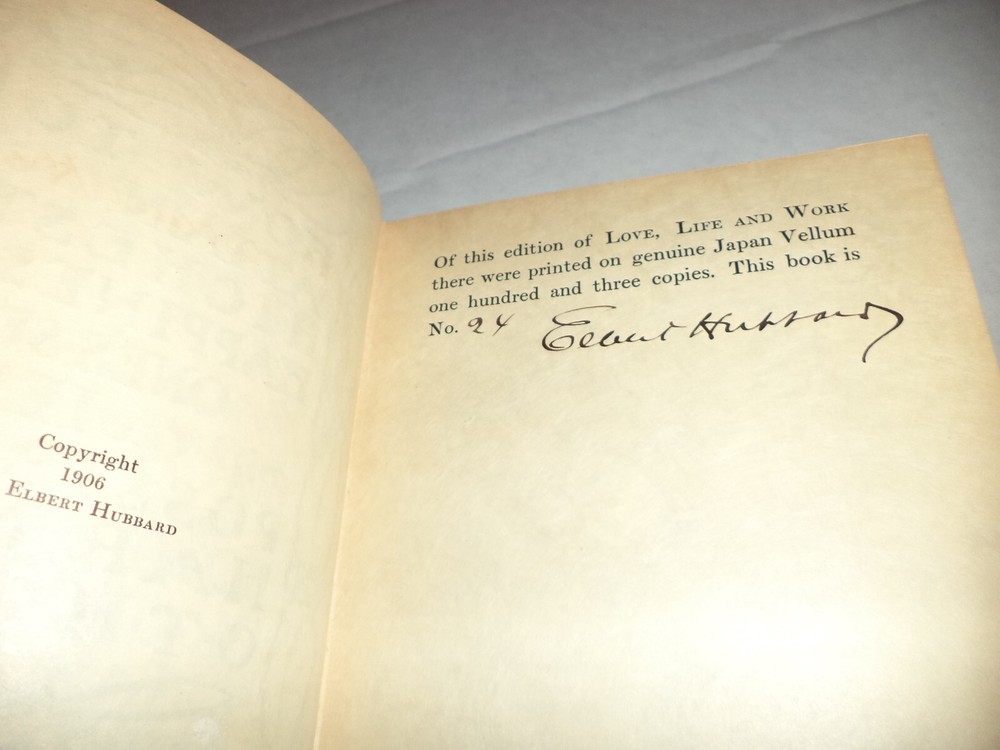 Copyright
1906
ELBERT HUBBARD
Of this edition of LOVE, LIFE AND WORK
there were printed on genuine Japan Vellum
one hundred and three copies. This book is
No. 24 Elbert Hubbard